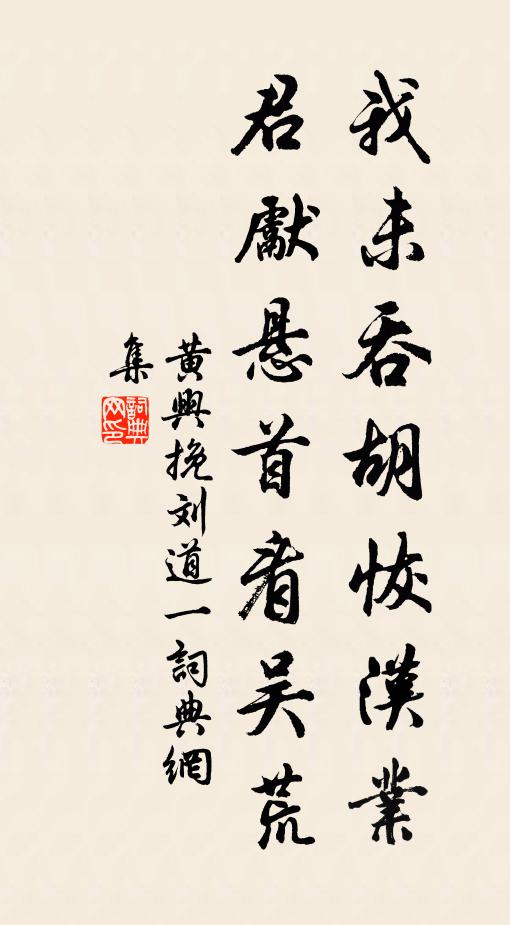 我未吞胡恢漢業
君獻悬首看吴荒
黄興挽刘道一詞典網
集
詞典
网印